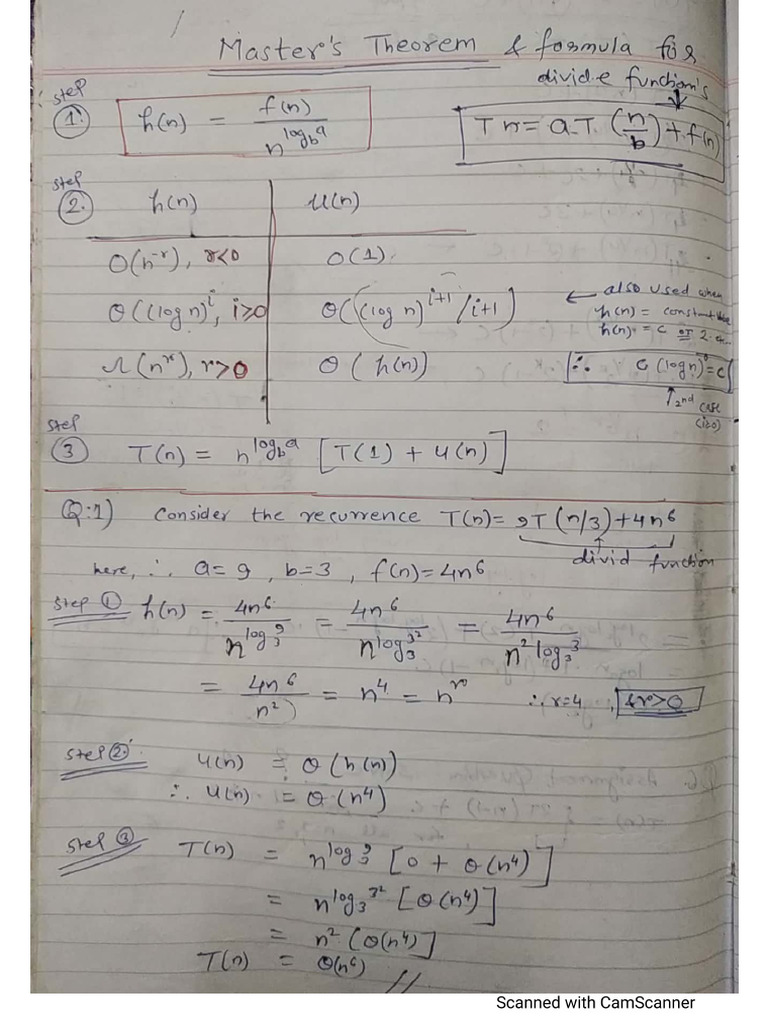 Master's Theorem & formula for
divide function's
step
1. h(n) = f(n) / n^log_b^a
Tn = a.T (n/b) + f(n)
step
2. h(n) | u(n)
O(n^-r), r<0 | O(1).
Θ((log n)^i, i≥0 | Θ((log n)^i+1/i+1)
← also used when
h(n) = constant
h(n) = c or 2.
Ω(n^r), r>0 | Θ(h(n))
∴ c (log n)^0 = c
↑2nd case
(i≥0)
step
3 T(n) = n^log_b^a [T(1) + u(n)]
Q.1) Consider the recurrence T(n) = 9T(n/3)+4n^6
divid function
here, ∴ a=9, b=3, f(n)=4n^6
Step 1 h(n) = 4n^6 / n^log_3^9 = 4n^6 / n^log_3^3^2 = 4n^6 / n^2 log_3^3
= 4n^6 / n^2 = n^4 = n^r ∴ r=4, & r>0
Step 2. u(n) = Θ(h(n))
∴ u(n) = Θ(n^4)
Step 3 T(n) = n^log_3^9 [0 + Θ(n^4)]
= n^log_3^3^2 [Θ(n^4)]
= n^2 [Θ(n^4)]
T(n) = Θ(n^6) //
Scanned with CamScanner